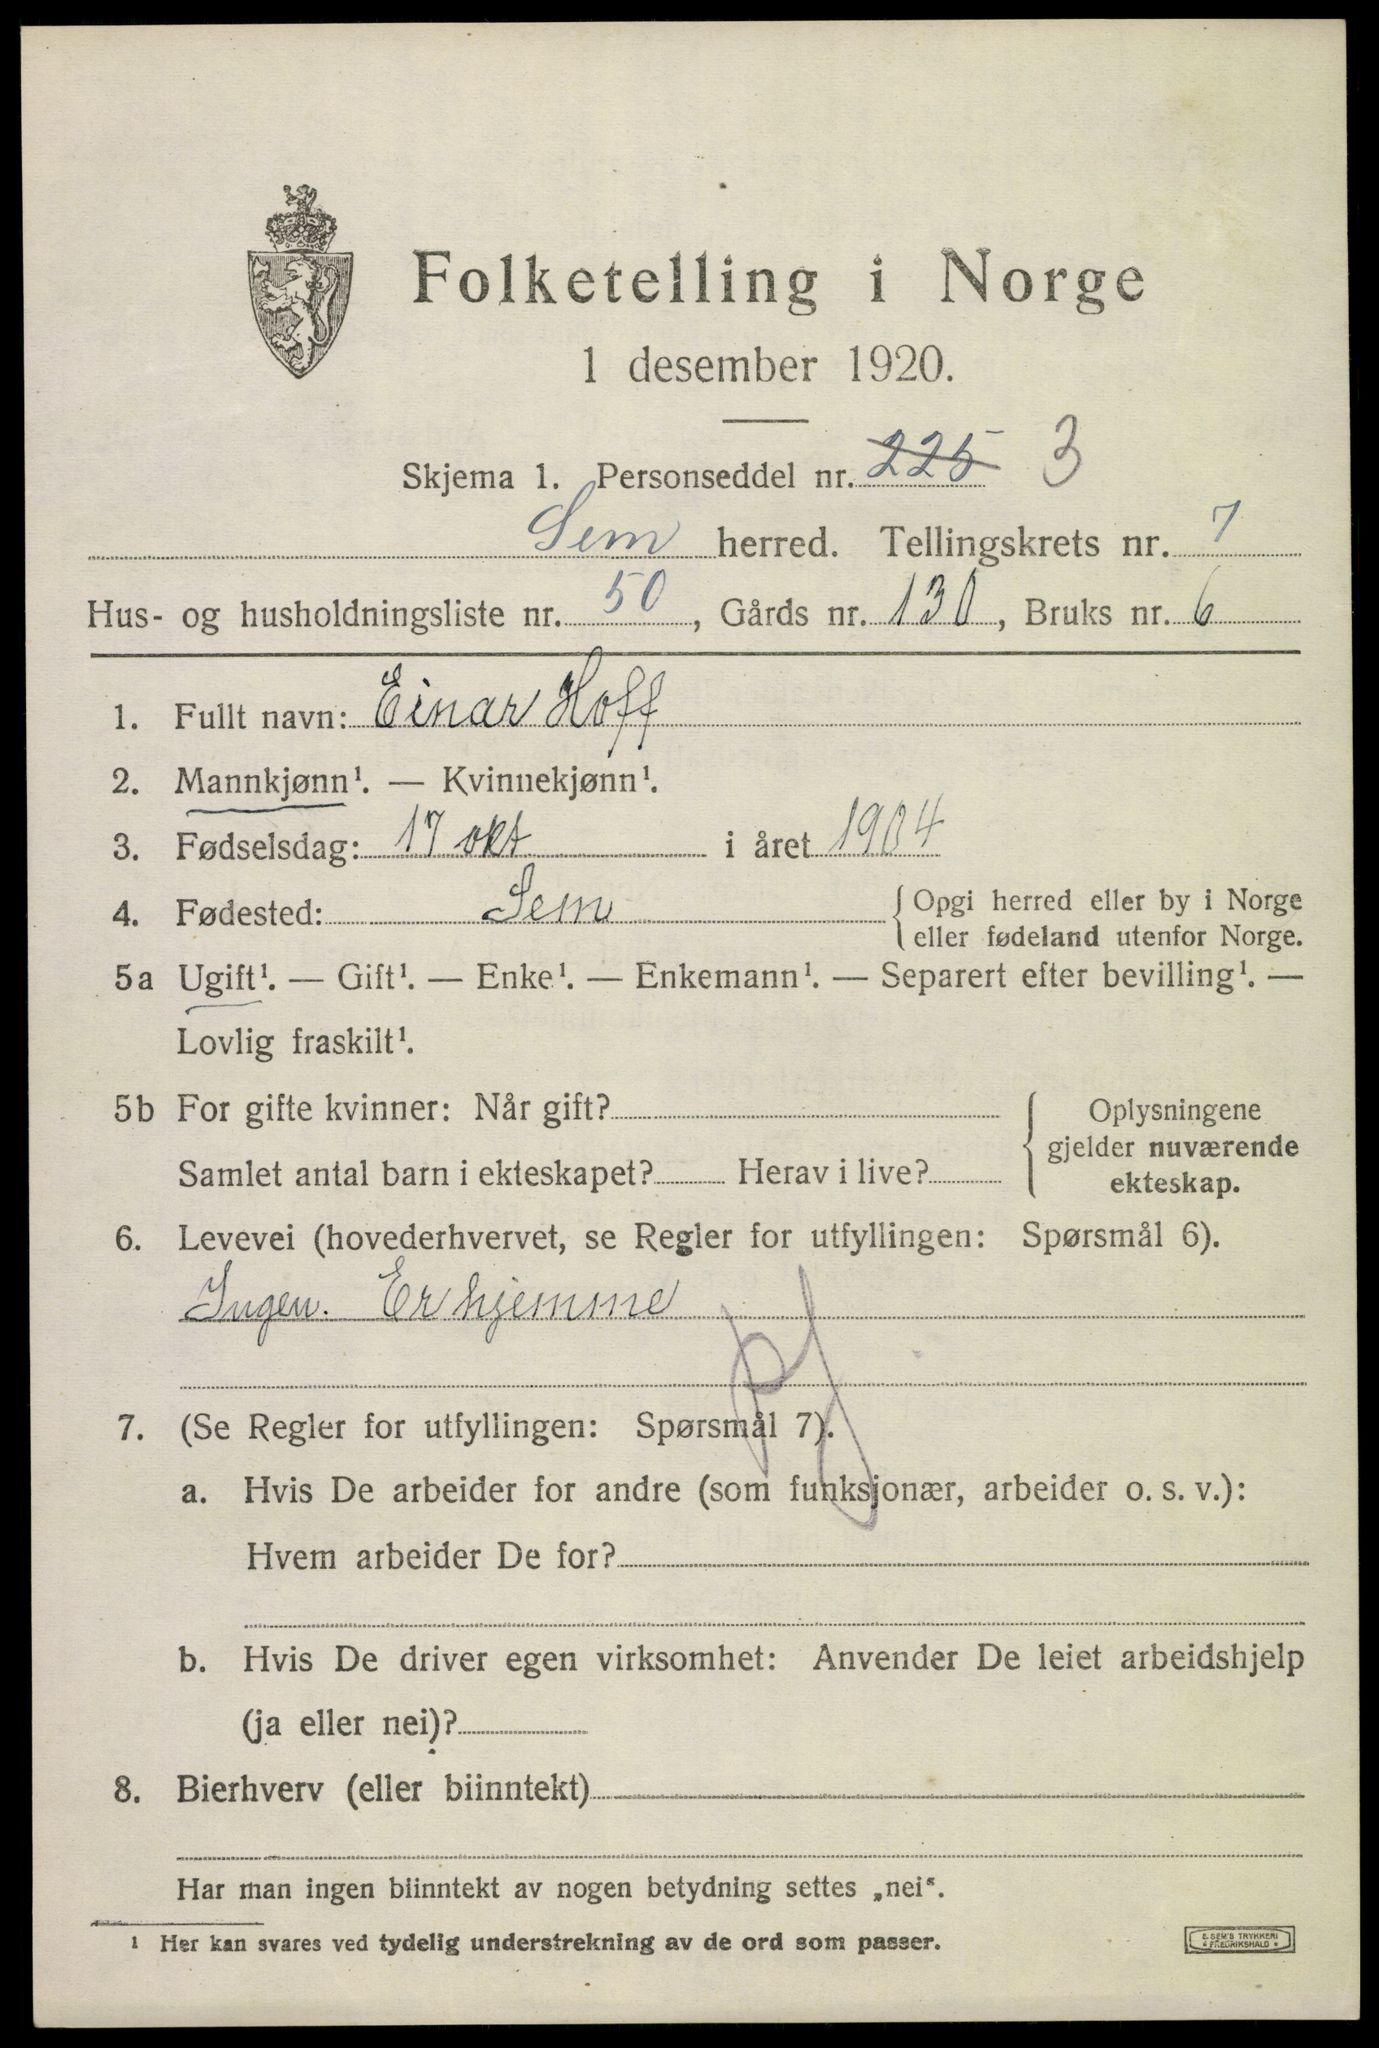 Folketelling i Norge
1 desember 1920.
Skjema 1. Personseddel nr. 225 3
Sem herred. Tellingskrets nr. 7
Hus- og husholdningsliste nr. 50, Gårds nr. 130, Bruks nr. 6
1. Fullt navn: Einar Hoff
2. Mannkjønn¹. — Kvinnekjønn¹.
3. Fødselsdag: 17 okt i året 1904
4. Fødested: Sem {Opgi herred eller by i Norge
eller fødeland utenfor Norge.
5a Ugift¹. — Gift¹. — Enke¹. — Enkemann¹. — Separert efter bevilling¹. —
Lovlig fraskilt¹.
5b For gifte kvinner: Når gift?
Samlet antal barn i ekteskapet? Herav i live?
Oplysningene
gjelder nuværende
ekteskap.
6. Levevei (hovederhvervet, se Regler for utfyllingen: Spørsmål 6).
Ingen. Er hjemme
7. (Se Regler for utfyllingen: Spørsmål 7).
a. Hvis De arbeider for andre (som funksjonær, arbeider o. s. v.):
Hvem arbeider De for?
b. Hvis De driver egen virksomhet: Anvender De leiet arbeidshjelp
(ja eller nei)?
8. Bierhverv (eller biinntekt)
Har man ingen biinntekt av nogen betydning settes „nei".
¹ Her kan svares ved tydelig understrekning av de ord som passer.
E. SEM'S TRYKKERI
* FREDRIKSHALD *